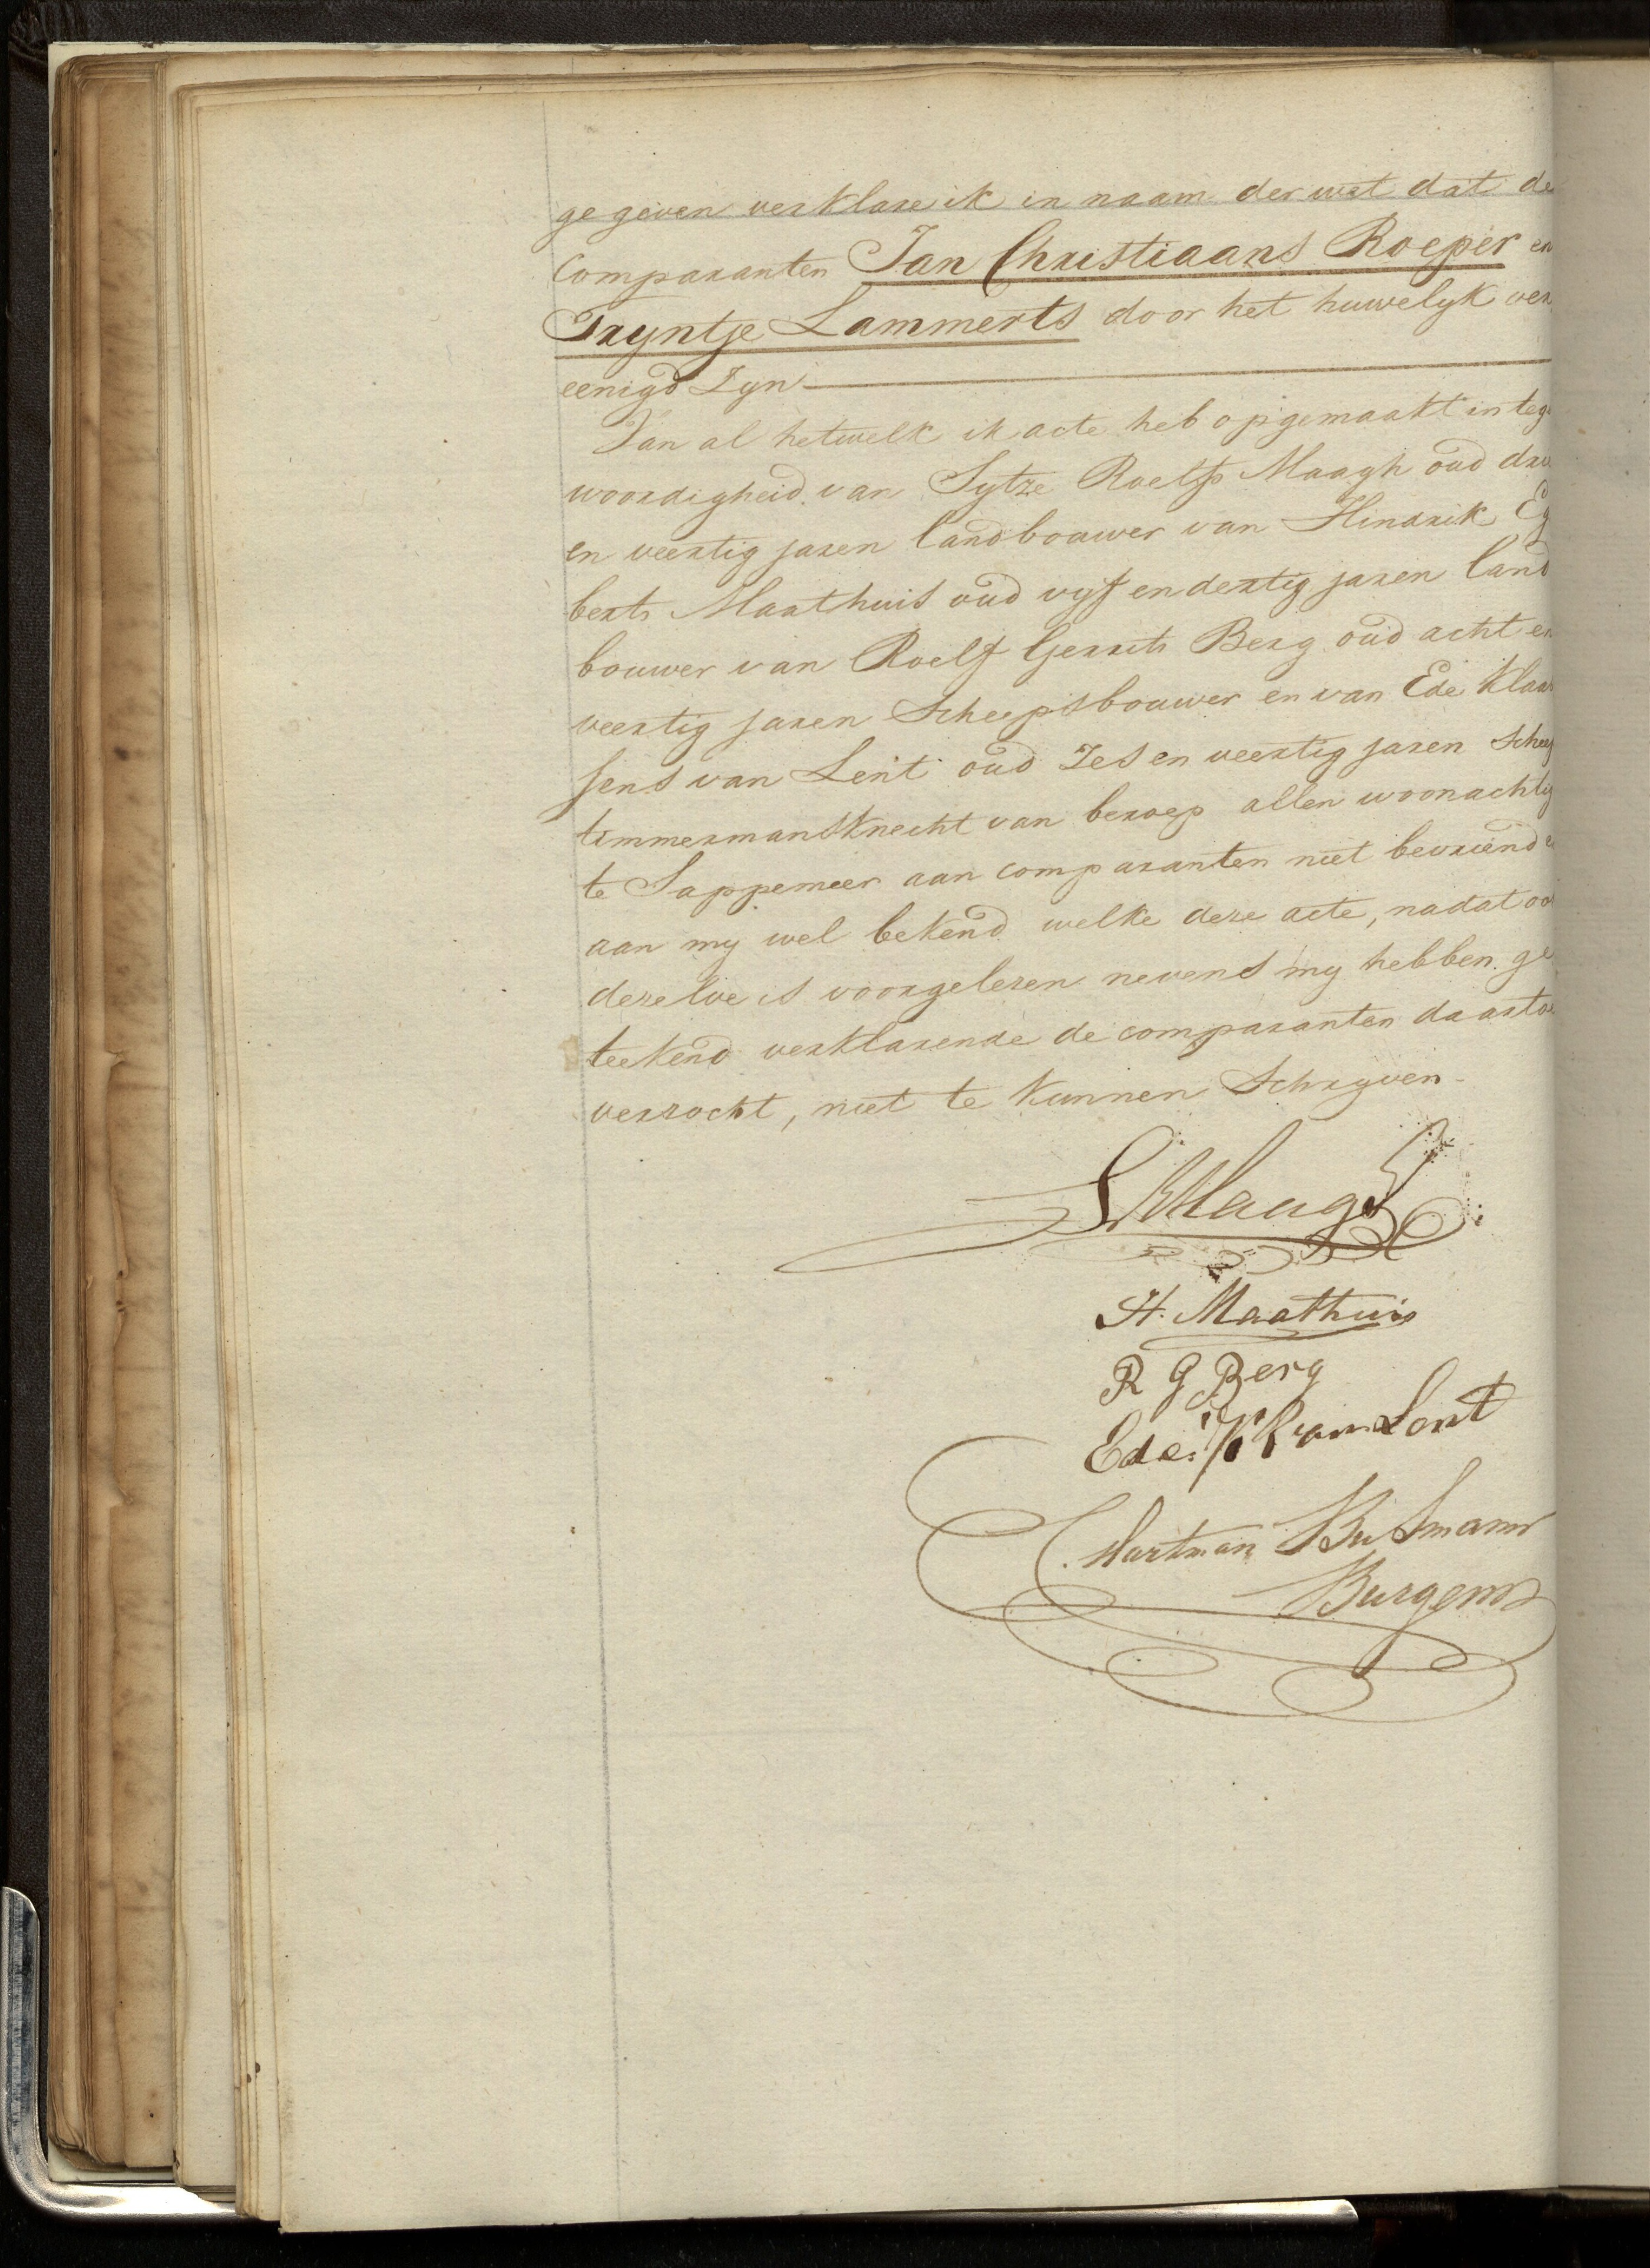 gegeven verklare ik in naam der wet dat de
Comparanten Jan Christiaans Roeper en
Tryntje Lammerts door het huwelyk ver
eenigd Zyn
Van al hetwelk ik acte heb opgemaakt in tege
woordigheid van Sytze Roelfs Maagh oud drie
en veertig jaren landbouwer van Hindrik Eg
berts Maathuis oud vyf en dertig jaren land
bouwer van Roelf Gerrits Berg oud acht en
veertig jaren Scheepsbouwer en van Ede Klaas
sens van Lent oud Zes en veertig jaren Scheep
timmermansknecht van beroep allen woonachtig
te Sappemeer aan comparanten niet bevriend en
aan my wel bekend welke deze acte, nadat ook
dezelve is voorgelezen nevens my hebben ge
teekend verklarende de comparanten daartoe
verzocht, niet te kunnen Schryven
S R Maagh
H. Maathuis
R G Berg
Ede K van Lent
Hartman Busmann
Burgemr